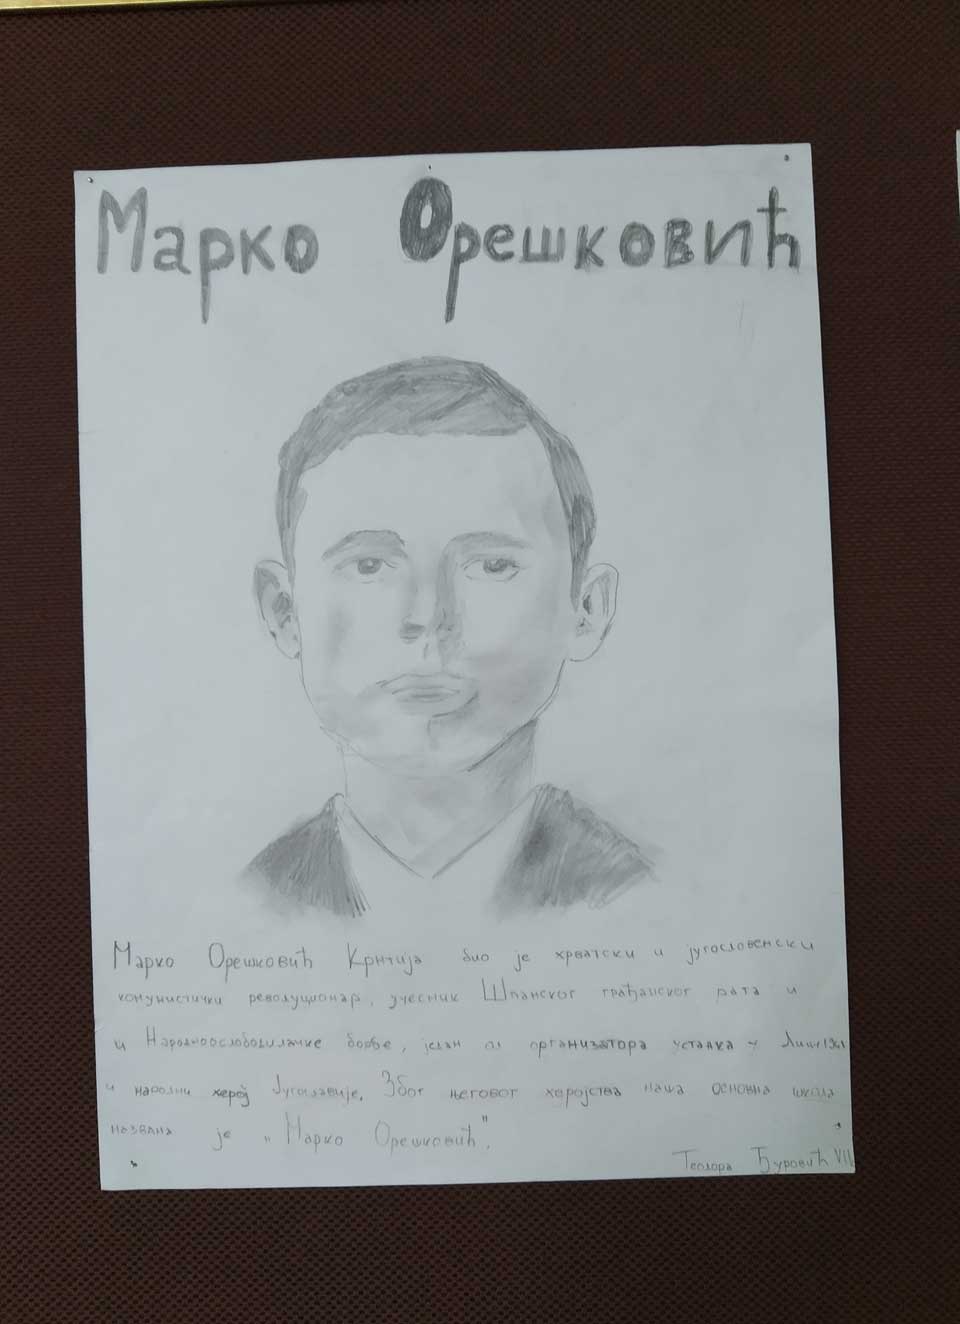 Марко Орешковић
Марко Орешковић Крнтија био је хрватски и југословенски
комунистички револуционар, учесник Шпанског грађанског рата и
и Народноослободилачке борбе, један од организатора устанка у Лици 1941
и народни херој Југославије. Због његовог херојства наша основна школа
названа је „Марко Орешковић".
Теодора Ђуровић VII